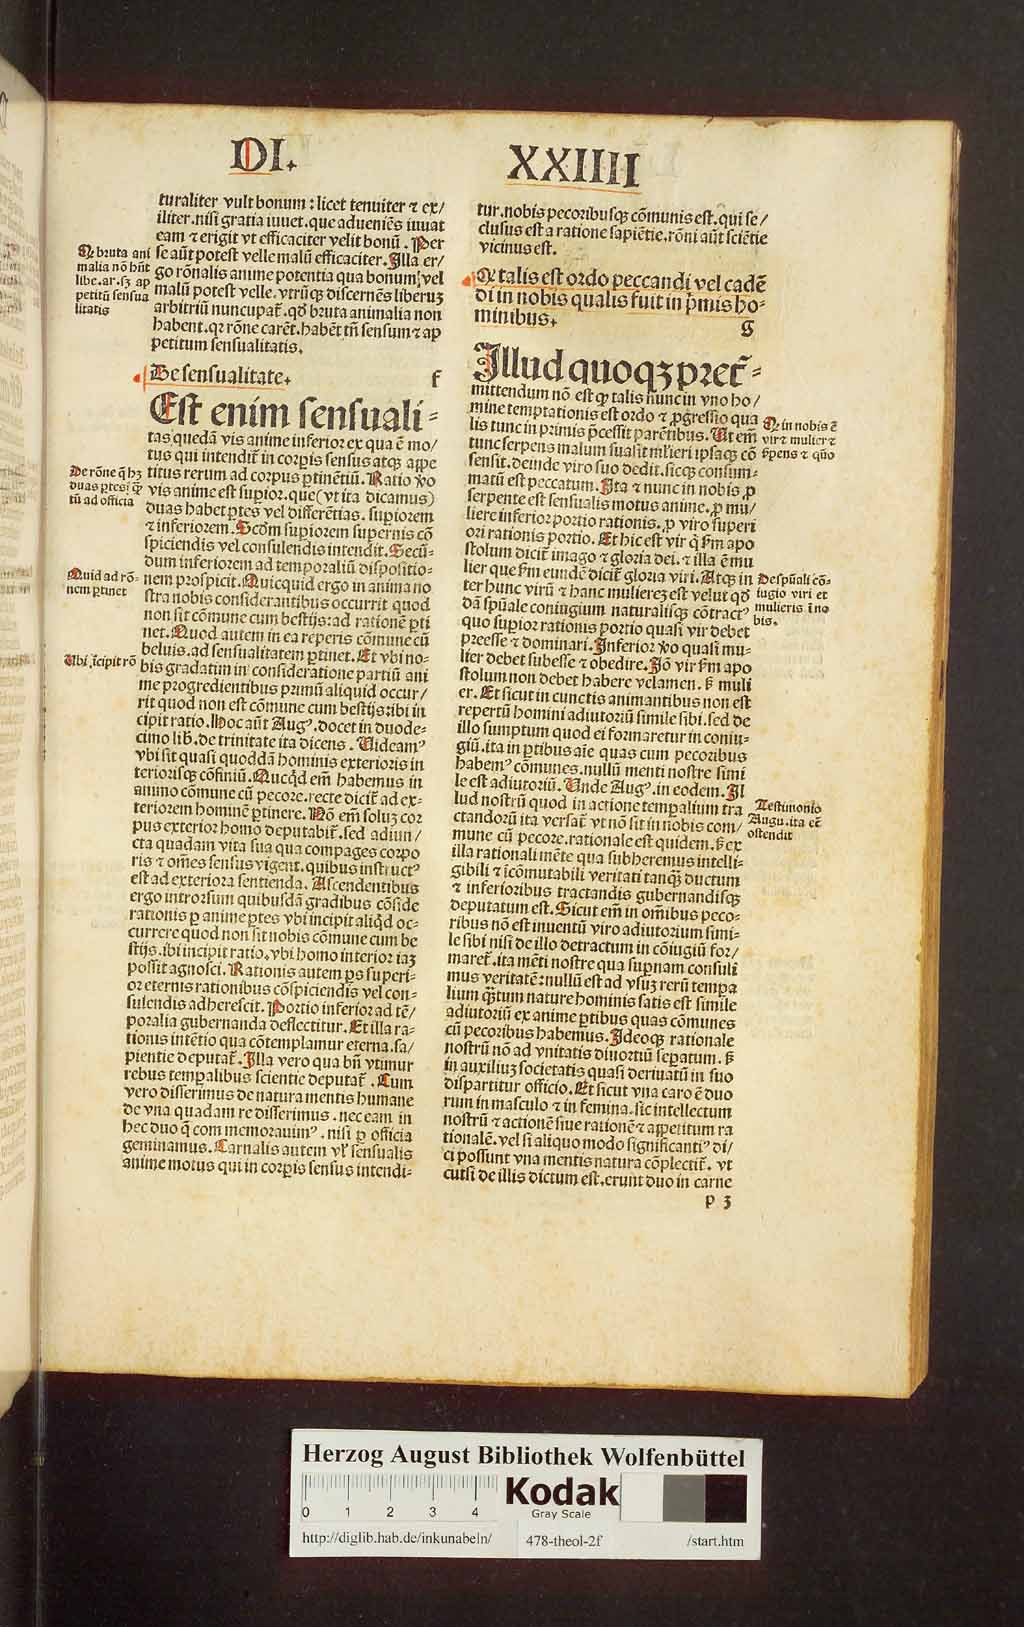 DI.
XXIIII
turaliter vult bonum: licet tenuiter ⁊ ex/
iliter. nisi gratia iuuet. que adueniēs iuuat
eam ⁊ erigit vt efficaciter velit bonū. Per
se aūt potest velle malū efficaciter. Illa er/
go rōnalis anime potentia qua bonum vel
malū potest velle. vtrūqꝫ discernēs liberuꝫ
arbitriū nuncupat᷑. qd̓ bruta animalia non
habent. qꝛ rōne carēt. habēt tn̄ sensum ⁊ ap
petitum sensualitatis.
Ꝙ bruta ani
malia nō hn̄t
libe. ar. sꝫ ap
petitū sensua
litatis
De sensualitate.
f
Est enim sensuali-
tas quedā vis anime inferior ex qua ē mo/
tus qui intendit᷑ in corꝑis sensus atqꝫ appe
titus rerum ad corpus ꝑtinētiū. Ratio ꝟo
vis anime est suꝑior. que (vt ita dicamus)
duas habet ꝑtes vel differētias. suꝑiorem
⁊ inferiorem. Scd̓m suꝑiorem supernis cō
spiciendis vel consulendis intendit. Secū-
dum inferiorem ad temporaliū dispositio-
nem prospicit. Quicquid ergo in anima no
stra nobis considerantibus occurrit quod
non sit cōmune cum bestijs: ad rationē ꝑti
net. Quod autem in ea reperis cōmune cū
beluis. ad sensualitatem ꝑtinet. Et vbi no-
bis gradatim in consideratione partiū ani
me progredientibus primū aliquid occur/
rit quod non est cōmune cum bestijs: ibi in
cipit ratio. Hoc aūt Augꝰ. docet in duode-
cimo lib̓. de trinitate ita dicens. Uideamꝰ
vbi sit quasi quoddā hominis exterioris in
teriorisqꝫ cōfiniū. Quicqd̓ em̄ habemus in
animo cōmune cū pecore. recte dicit᷑ ad ex-
teriorem hominē ꝑtinere. Nō em̄ soluꝫ cor
pus exterior homo deputabit᷑. sed adiun/
cta quadam vita sua qua compages corpo
ris ⁊ om̄es sensus vigent. quibus instructꝰ
est ad exteriora sentienda. Ascendentibus
ergo introrsum quibusdā gradibus cōside
rationis ꝑ anime ꝑtes vbi incipit aliqd̓ oc-
currere quod non sit nobis cōmune cum be
stijs. ibi incipit ratio. vbi homo interior iaꝫ
possit agnosci. Rationis autem ps superi-
or eternis rationibus cōspiciendis vel con-
sulendis adherescit. Portio inferior ad tē/
poralia gubernanda deflectitur. Et illa ra-
tionis intētio qua cōtemplamur eterna. sa/
pientie deputat᷑. Illa vero qua bn̄ vtimur
rebus temꝑalibus scientie deputat᷑. Cum
vero disserimus de natura mentis humane
de vna quadam re disserimus. nec eam in
hec duo q̄ com memorauimꝰ. nisi ꝑ officia
geminamus. Carnalis autem vl̓ sensualis
anime motus qui in corꝑis sensus intendi-
De rōne q̄ hꝫ
duas ꝑtes
tū ad officia
Quid ad rō-
nem ꝑtinet
Ubi īcipit rō
tur. nobis pecoribusqꝫ cōmunis est. qui se/
clusus est a ratione sapiētie. rōni aūt sciētie
vicinus est.
Ꝙ talis est ordo peccandi vel cadē
di in nobis qualis fuit in p̄mis ho-
minibus.
G
Illud quoqꝫ pret᷑-
mittendum nō est ꝙ talis nunc in vno ho/
mine temptationis est ordo ⁊ ꝓgressio qua
lis tunc in primis p̄cessit parētibus. Ut em̄
tunc serpens malum suasit mlieri ipsaqꝫ cō
sensit. deinde viro suo dedit. sicqꝫ consum-
matū est peccatum. Ita ⁊ nunc in nobis ꝓ
serpente est sensualis motus anime. ꝓ mu/
liere inferior portio rationis. ꝓ viro superi
ori rationis portio. Et hic est vir q̇ ẜm apo
stolum dicit᷑ imago ⁊ gloria dei. ⁊ illa ē mu
lier que ẜm eundē dicit᷑ gloria viri. Atqꝫ in
ter hunc virū ⁊ hanc mulierēꝫ est velut qd̓
dā spūale coniugium naturalisqꝫ cōtractꝰ
quo suꝑior rationis portio quasi vir debet
preesse ⁊ dominari. Inferior ꝟo quasi mu-
lier debet subesse ⁊ obedire. Iō vir ẜm apo
stolum non debet habere velamen. ꝫ muli
er. Et sicut in cunctis animantibus non est
repertū homini adiutoriū simile sibi. sed de
illo sumptum quod ei formaretur in coniu-
giū. ita in ꝑtibus aīe quas cum pecoribus
habemꝰ cōmunes. nullū menti nostre simi
le est adiutoriū. Unde Augꝰ. in eodem. Il
lud nostrū quod in actione temꝑalium tra
ctandorū ita versat᷑ vt nō sit in nobis com/
mune cū pecore. rationale est quidem. ꝫ ex
illa rationali mēte qua subheremus intelli-
gibili ⁊ īcōmutabili veritati tanqꝫ ductum
⁊ inferioribus tractandis gubernandisqꝫ
deputatum est. Sicut em̄ in om̄ibus peco-
ribus nō est inuentū viro adiutorium simi-
le sibi nisi de illo detractum in cōiugiū for/
maret᷑. ita mēti nostre qua suꝑnam consuli
mus veritatē: nullū est ad vsuꝫ rerū tempa
lium q̄tum nature hominis satis est simile
adiutoriū ex anime ꝑtibus quas cōmunes
cū pecoribus habemus. Ideoqꝫ rationale
nostrū nō ad vnitatis diuortiū seꝑatum. ꝫ
in auxiliuꝫ societatis quasi deriuatū in suo
dispartitur officio. Et sicut vna caro ē duo
rum in masculo ⁊ in femina. sic intellectum
nostrū ⁊ actionē siue rationē ⁊ appetitum ra
tionalē. vel si aliquo modo significantiꝰ di/
ci possunt vna mentis natura cōplectit᷑. vt
cutsi de illis dictum est. erunt duo in carne
Ꝙ in nobis ē
vir ⁊ mulier ⁊
ẜpens ⁊ quō
De spūali cō-
iugio viri et
mulieris ī no
bis.
Testimonio
Augu. ita eē
ostendit
p 3
Herzog August Bibliothek Wolfenbüttel
0 1 2 3 4
Kodak
Gray Scale
http://diglib.hab.de/inkunabeln/ 478-theol-2f /start.htm